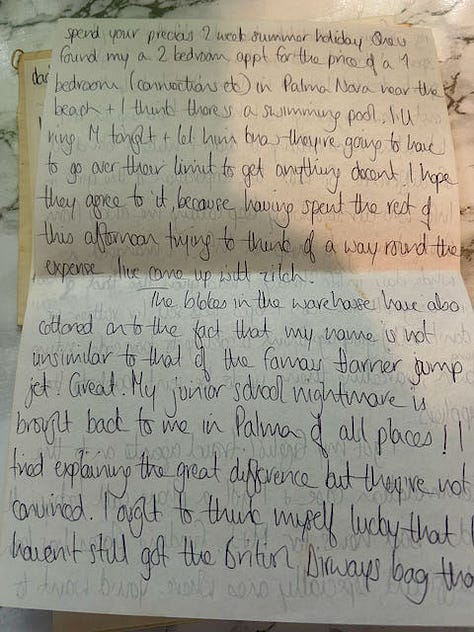 spend your precious 2 week summer holiday. Chris
found my a 2 bedroom appt for the price of a 1
bedroom (connections etc) in Palma Nova near the
beach + I think there's a swimming pool. I'll
ring M tonight + let him know they're going to have
to go over their limit to get anything decent. I hope
they agree to it because having spent the rest of
this afternoon trying to think of a way round the
expense I've come up with zilch.
The blokes in the warehouse have also
cottoned on to the fact that my name is not
unsimilar to that of the famous Harrier jump
jet. Great. My junior school nightmare is
brought back to me in Palma of all places! I
tried explaining the great difference but they're not
convinced. I ought to think myself lucky that I
haven't still got the British Airways bag tha